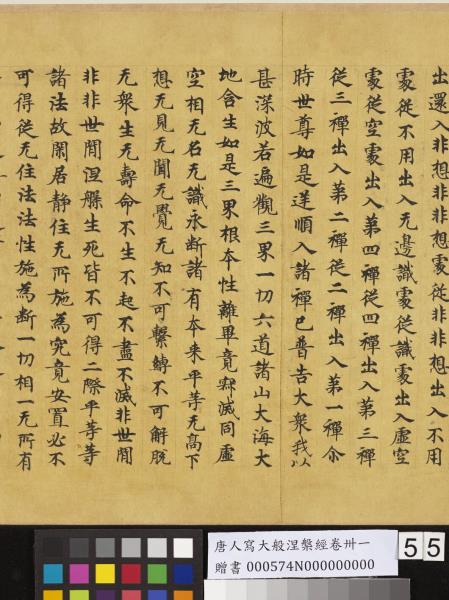 出還入非想非非想處從非非想出入不用
處從不用出入无邊識處從識處出入虛空
處從空處出入第四禪從四禪出入第三禪
從三禪出入第二禪從二禪出入第一禪尒
時世尊如是逆順入諸禪已普告大衆我以
甚深波若遍觀三界一切六道諸山大海大
地含生如是三界根本性離畢竟寂滅同虛
空相无名无識永斷諸有本來平等无高下
想无見无聞无覺无知不可繫縛不可解脫
无衆生无壽命不生不起不盡不滅非世間
非非世間涅槃生死皆不可得二際平等等
諸法故閑居静住无所施為究竟安置必不
可得從无住法法性施為断一切相一无所有
唐人寫大般涅槃經卷卅一
贈書 000574N000000000
55